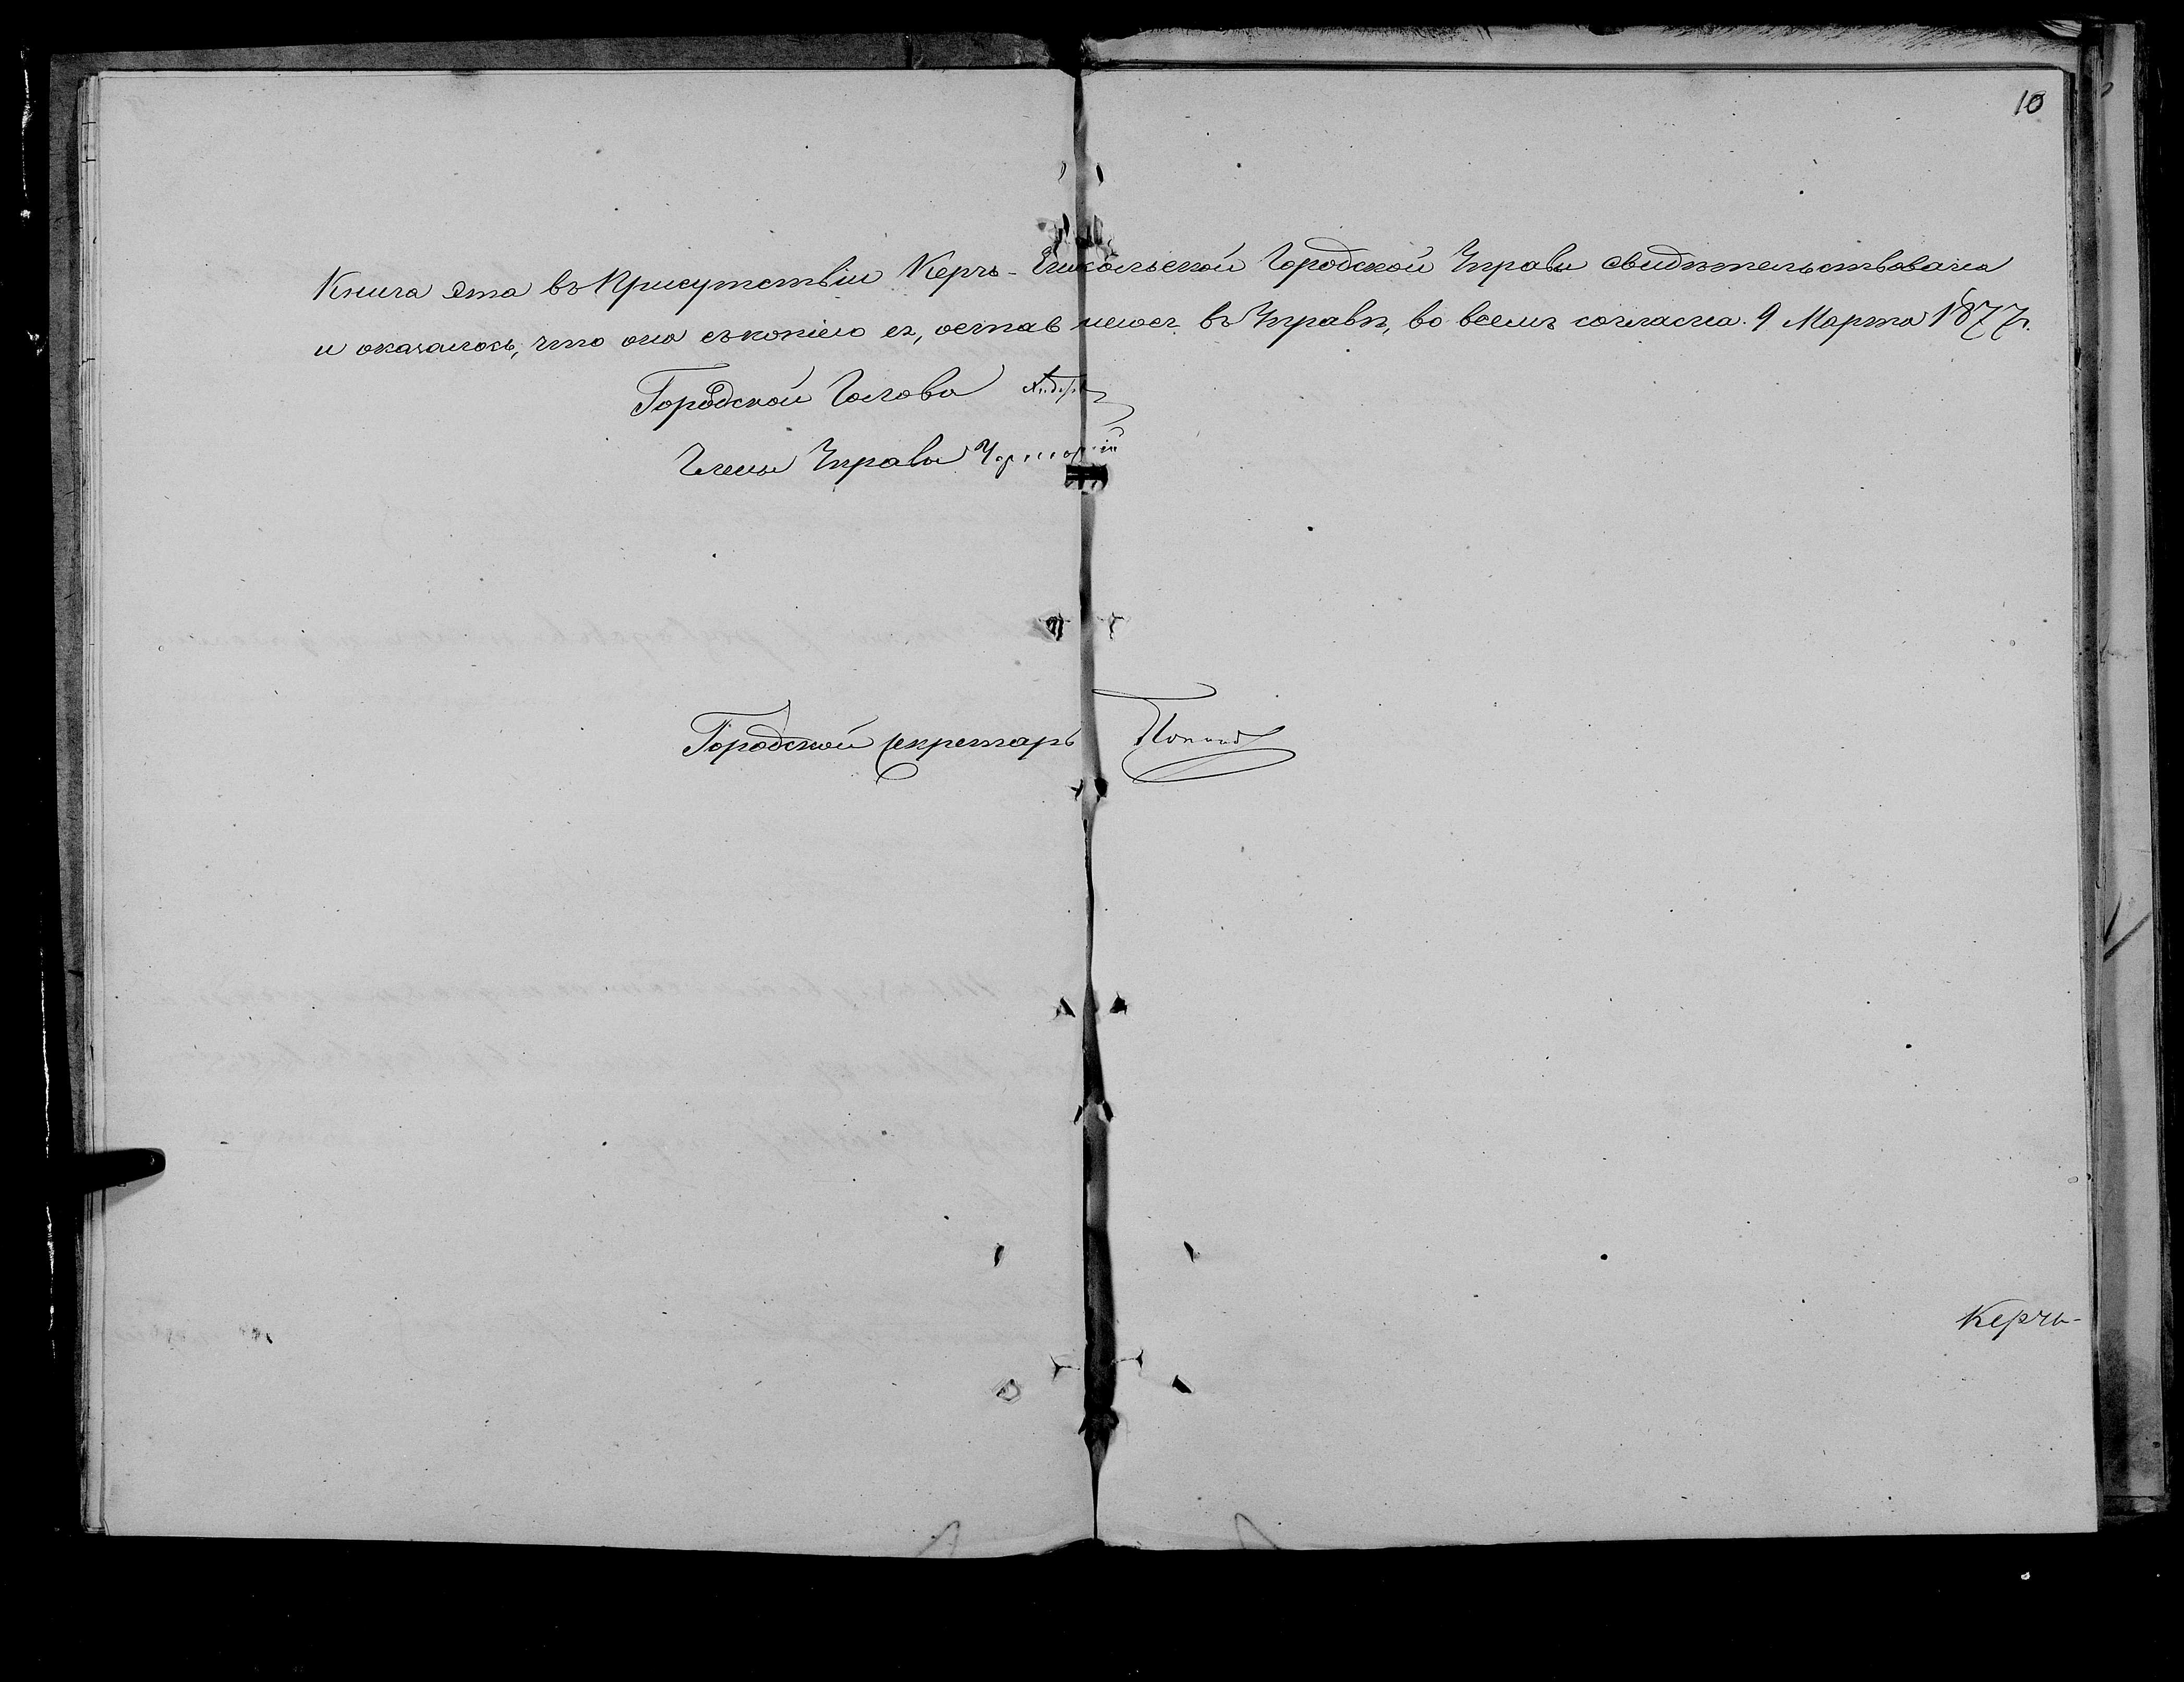 10
Книга эта въ Присутствіи Керчь-Еникольской Городской Управы свидѣтельствована
и оказалось, что она съ копіею ея, оставшеюся въ Управѣ, во всемъ согласна. 9 Марта 1877 г.
Городской Голова
Члены Управы
Городской секретарь
Керчь-